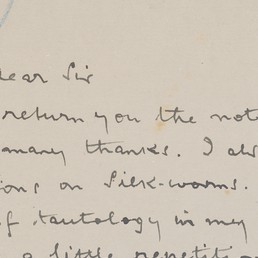 Dear Sir
return you the note
many thanks. I al
ions on Silk-worms.
of tautology in my
a little repetit